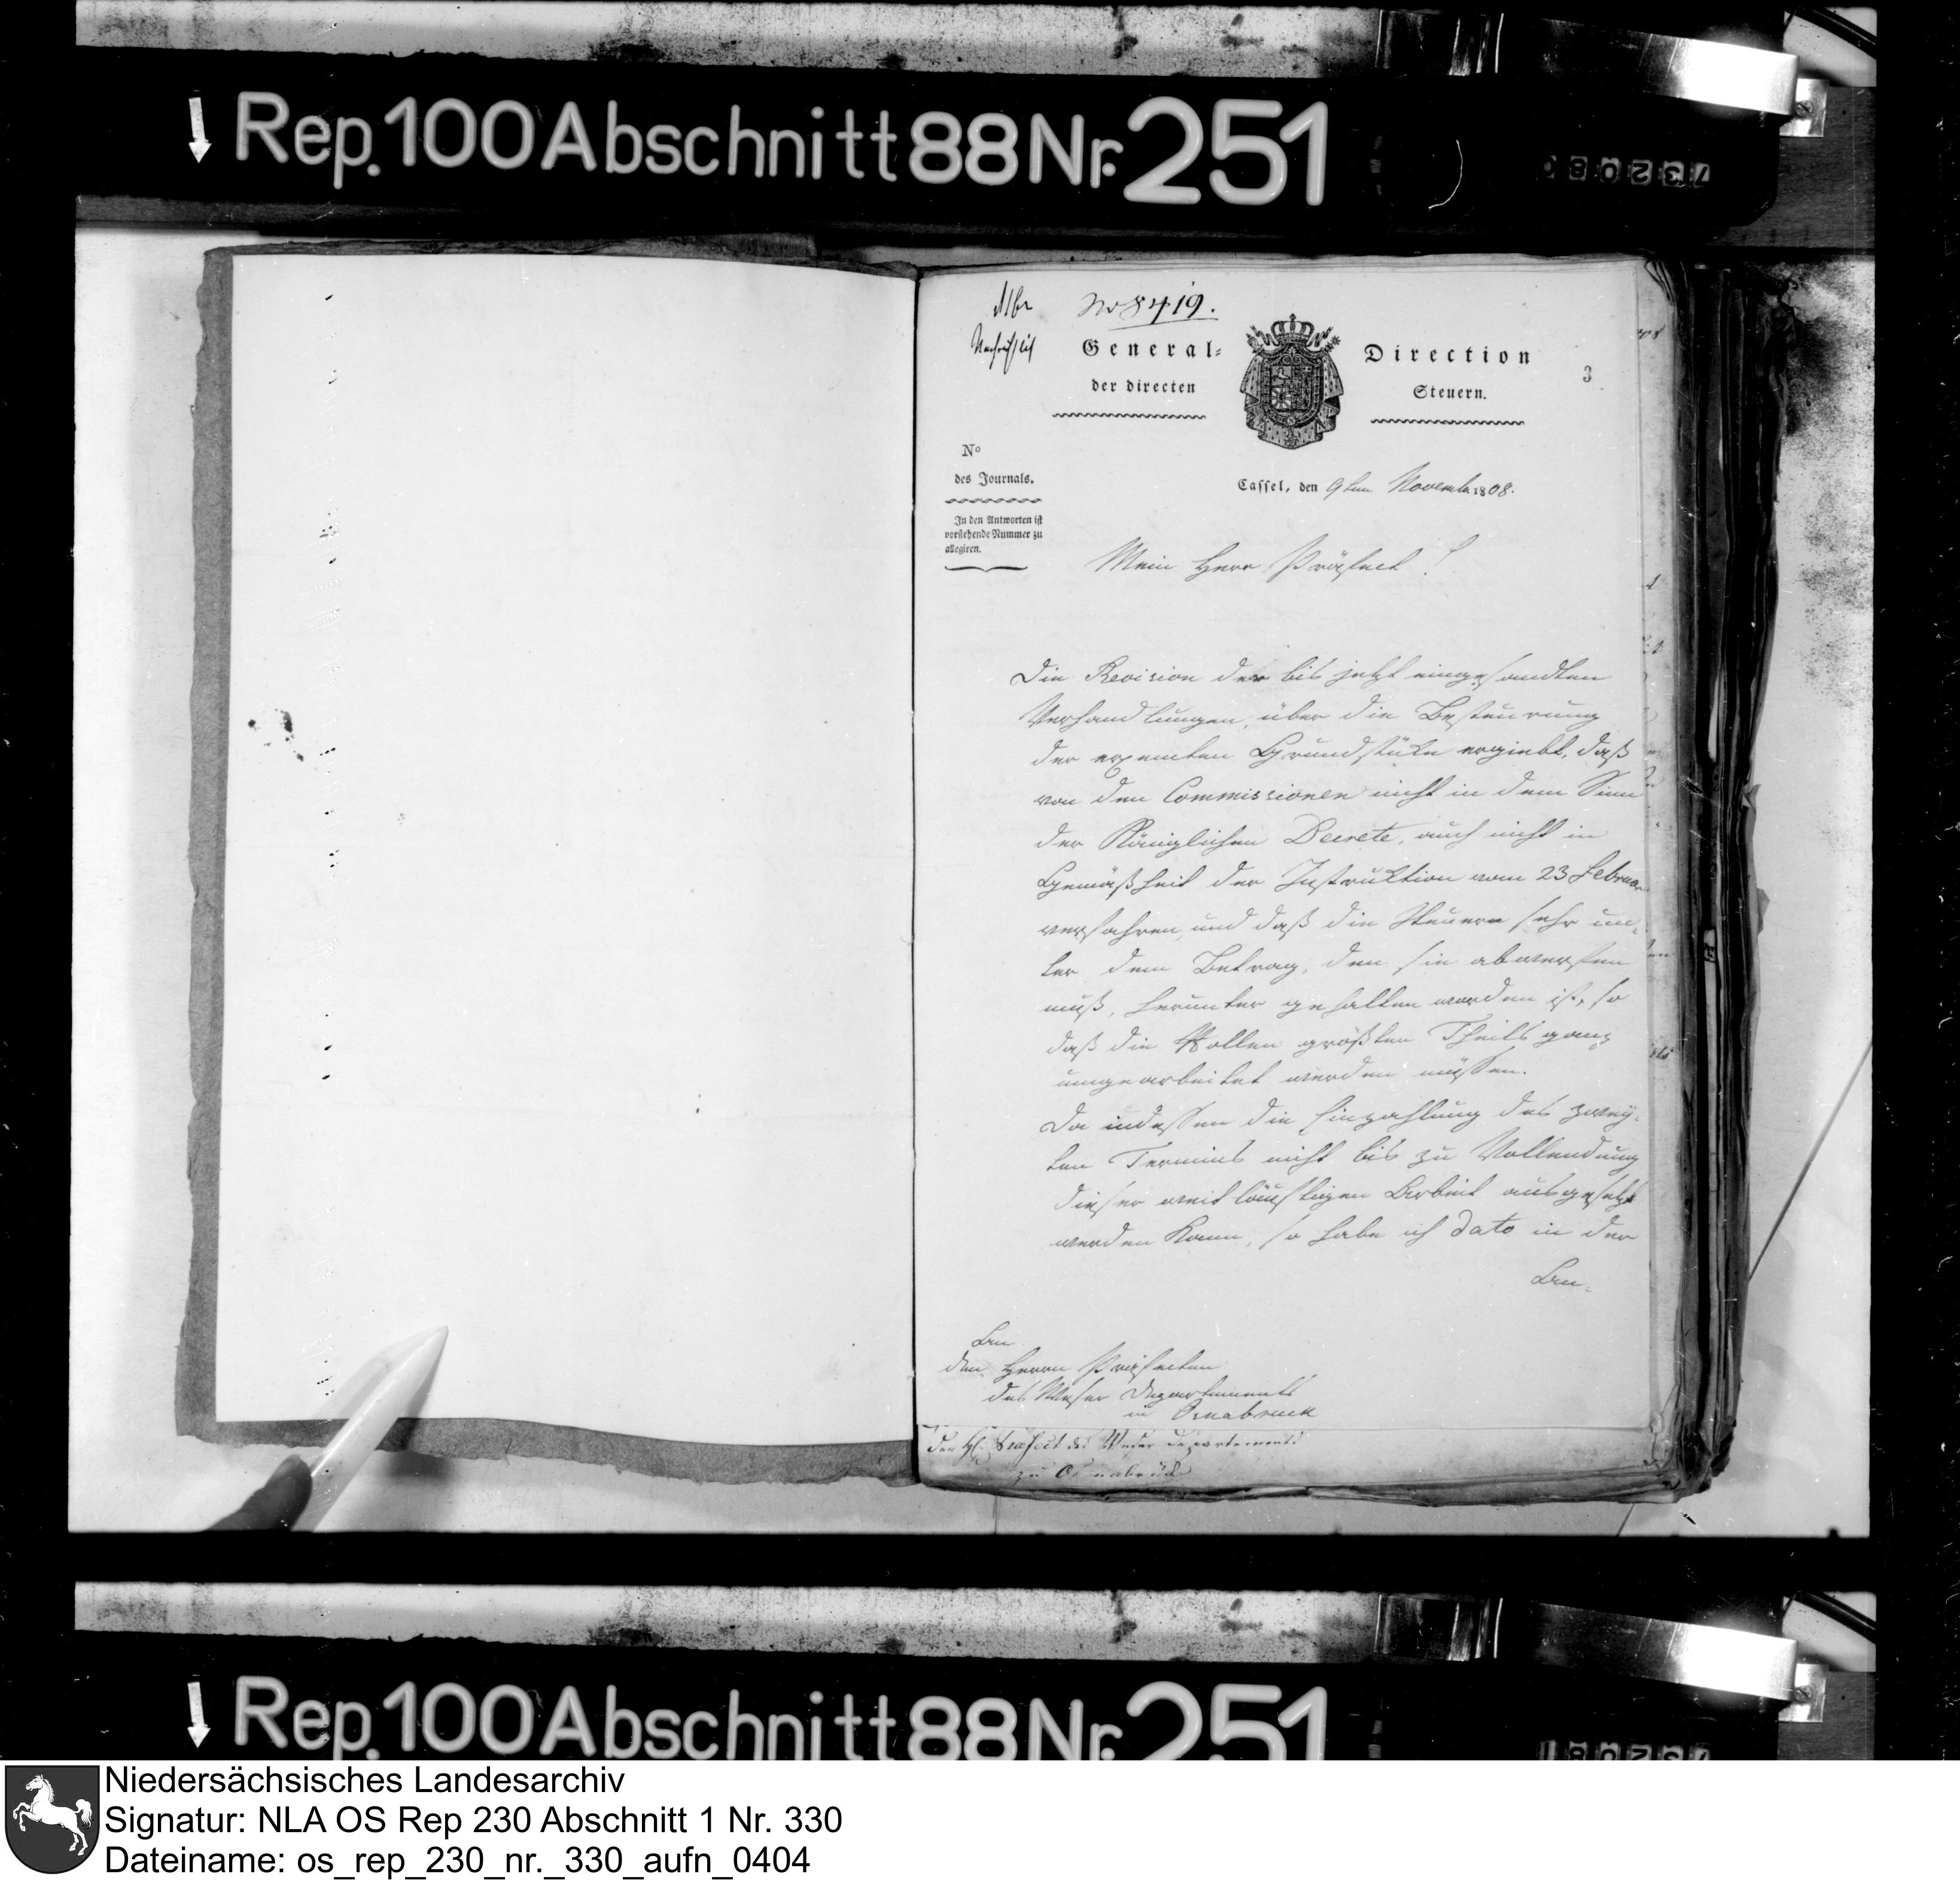 Rep. 100 Abschnitt 88 Nr. 251
732080
No 8419.
General- Direction
der directen Steuern.
3
No
des Journals.
In den Antworten ist
vorstehende Nummer zu
allegiren.
Cassel, den 9ten Novembr 1808.
Mein Herr Präfect!
Die Revision der bis jetzt eingesandten
Verhandlungen, über die Besteurung
der exemten Grundstüke ergiebt, daß
von den Commissionen nicht in dem Sinn
der Königlichen Decrete, auch nicht in
Gemäßheit der Instruktion vom 23 Februar
verfahren, und daß die Steuern sehr un-
ter dem Betrag, den sie abwerfen
muß, herunter gehalten worden ist, so
daß die Rollen größten Theils ganz
umgearbeitet werden müssen.
Da indessen die Einzahlung des zwey-
ten Termins nicht bis zu Vollendung
dieser weitläuftigen Arbeit ausgesetzt
werden kann, so habe ich dato in der
An-
An
den Herrn Präfecten
des Weser Departements
in Osnabruck
Den H. Präfect des Weser Departements
zu Osnabrück
Rep. 100 Abschnitt 88 Nr. 251
Niedersächsisches Landesarchiv
Signatur: NLA OS Rep 230 Abschnitt 1 Nr. 330
Dateiname: os_rep_230_nr._330_aufn_0404